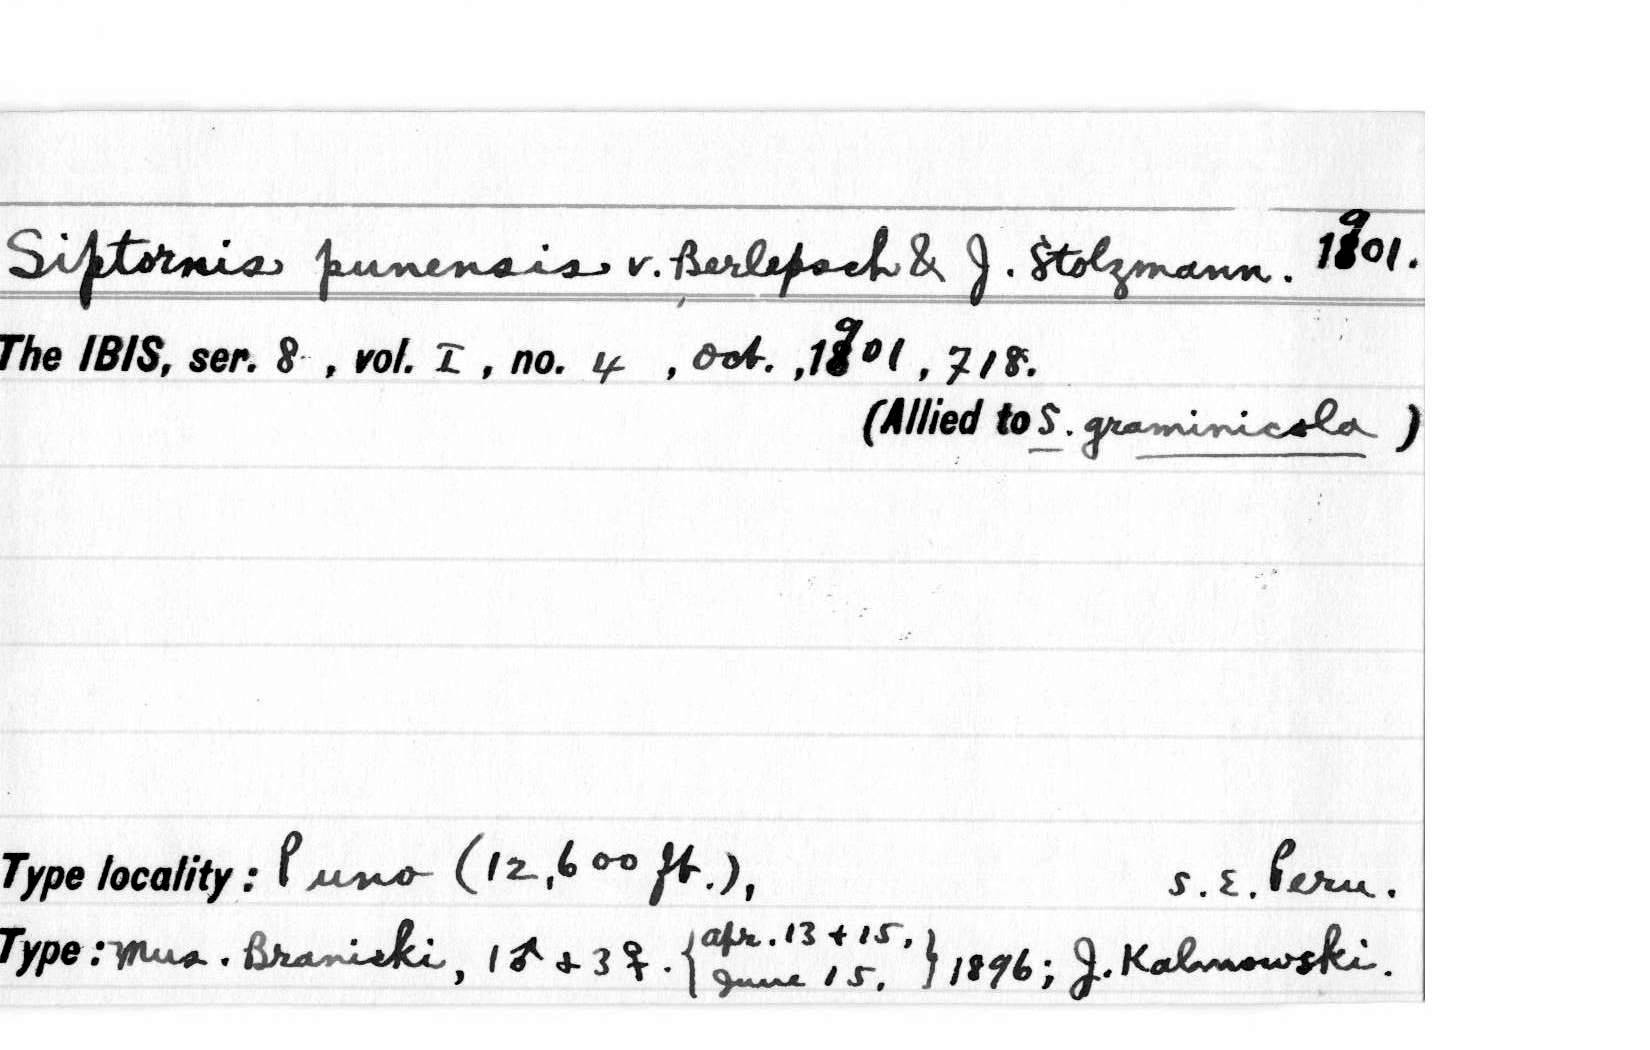 Siptornis punensis v. Berlepsch & J. Stolzmann. 1901.
The IBIS, ser. 8, vol. I, no. 4, Oct., 1901, 718.
(Allied to S. graminicola)
Type locality: Puno (12,600 ft.), S.E. Peru.
Type: Mus. Branicki, 1♂ & 3♀. {Apr. 13 + 15, June 15.} 1896; J. Kalinowski.